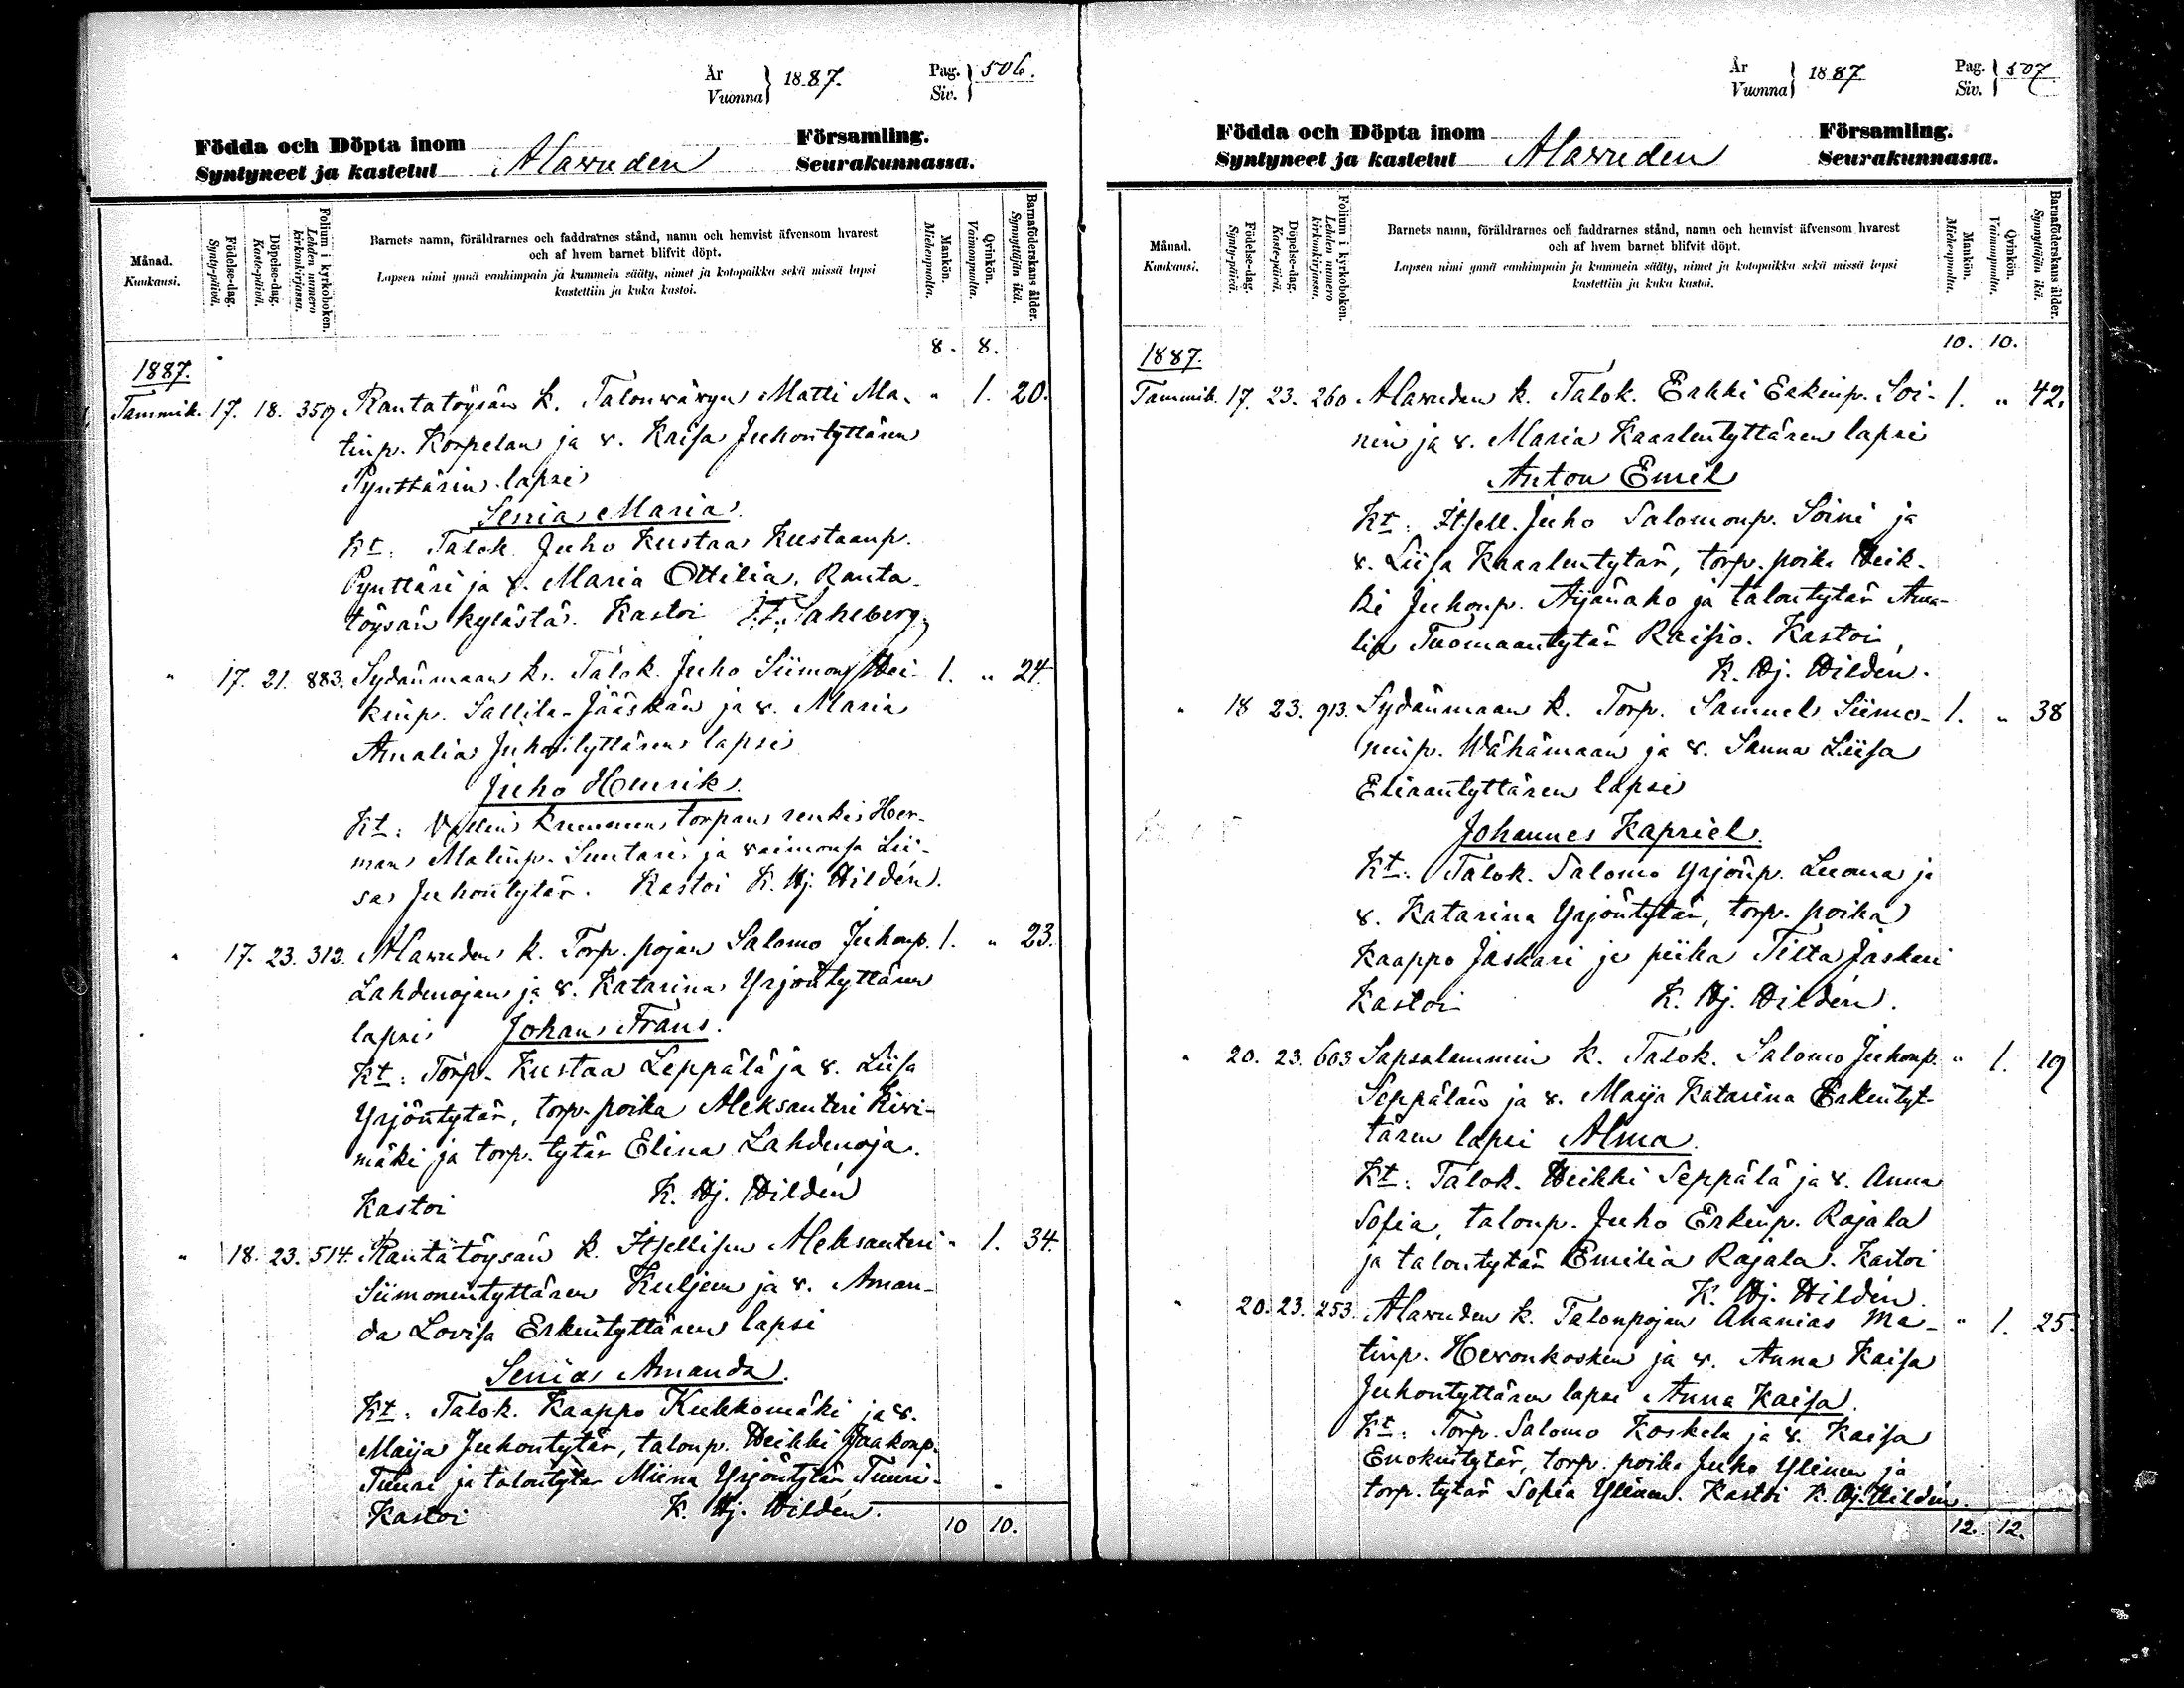 År
Vuonna } 1887.
Pag.
Siv. } 506.
Födda och Döpta inom
Syntyneet ja kastetut
Alavuden
Församling.
Seurakunnassa.
Månad.
Kuukausi.
Födelse-dag.
Synty-päivä.
Döpelse-dag.
Kaste-päivä.
Folium i kyrkoboken.
Lehden numero
kirkonkirjassa.
Barnets namn, föräldrarnes och faddrarnes stånd, namn och hemvist äfvensom hvarest
och af hvem barnet blifvit döpt.
Lapsen nimi ynnä vanhimpain ja kummein sääty, nimet ja kotopaikka sekä missä lapsi
kastettiin ja kuka kastoi.
Mankön.
Miehenpuolta.
Qvinkön.
Vaimonpuolta.
Barnaföderskans ålder.
Synnyttäjän ikä.
8. 8.
1887.
Tammik. 17. 18. 359 Rantatöysän k. Talonvävyn Matti Ma- " 1. 20.
tinp. Korpelan ja v. Kaisa Juhontyttären
Pynttärin lapsi
Senia Maria.
Kt: Talok. Juho Kustaa Kustaanp.
Pynttäri ja v. Maria Ottilia, Ranta-
töysän kylästä. Kastoi Sahlberg.
" 17. 21. 883. Sydänmaan k. Talok. Juho Siimonp Hei- 1. " 24.
kinp. Sallila-Jääskän ja v. Maria
Amalia Juhontyttären lapsi
Juho Henrik.
Kt: torpan renki Her-
man Matinp. Suntari ja vaimonsa Lii-
sa Juhontytär. Kastoi K. Hj. Hildén.
" 17. 23. 312. Alavuden k. Torp. pojan Salomo Juhonp. 1. " 23.
Lahdenojan ja v. Katarina Yrjöntyttären
lapsi Johan Frans.
Kt: Torp. Kustaa Leppälä ja v. Liisa
Yrjöntytär, torp. poika Aleksanteri Kivi-
mäki ja torp. tytär Elina Lahdenoja.
Kastoi K. Hj. Hildén
" 18. 23. 514. Rantatöysän k. Itsellisen Aleksanteri " 1. 34.
Siimonentyttären Kuljeen ja v. Aman-
da Lovisa Erkintyttären lapsi
Senia Amanda.
Kt: Talok. Kaappo Kukkomäki ja v.
Maija Juhontytär, talonp. Heikki Jaakonp.
Tuuri ja talontytär Miina Yrjöntytär Tuuri.
Kastoi K. Hj. Hildén.
10 10.
År
Vuonna } 1887
Pag.
Siv. } 507
Födda och Döpta inom
Syntyneet ja kastetut
Alavuden
Församling.
Seurakunnassa.
Månad.
Kuukausi.
Födelse-dag.
Synty-päivä.
Döpelse-dag.
Kaste-päivä.
Folium i kyrkoboken.
Lehden numero
kirkonkirjassa.
Barnets namn, föräldrarnes och faddrarnes stånd, namn och hemvist äfvensom hvarest
och af hvem barnet blifvit döpt.
Lapsen nimi ynnä vanhimpain ja kummein sääty, nimet ja kotopaikka sekä missä lapsi
kastettiin ja kuka kastoi.
Mankön.
Miehenpuolta.
Qvinkön.
Vaimonpuolta.
Barnaföderskans ålder.
Synnyttäjän ikä.
10. 10.
1887.
Tammik. 17. 23. 260 Alavuden k. Talok. Erkki Erkinp. Soi- 1. " 42.
nin ja v. Maria Kaarlentyttären lapsi
Anton Emil
Kt: Itsell. Juho Salomonp. Soini ja
v. Liisa Kaarlentytär, torp. poika Heik-
ki Juhonp. Äijänaho ja talontytär Ama-
lia Tuomaantytär Raisio. Kastoi
K. Hj. Hildén.
" 18 23. 913. Sydänmaan k. Torp. Samuel Siimo- 1. " 38
ninp. Wähämaan ja v. Sanna Liisa
Eliaantyttären lapsi
Johannes Kapriel.
Kt: Talok. Salomo Yrjönp. Luoma ja
v. Katarina Yrjöntytär, torp. poika
Kaappo Jaskari ja piika Tilta Jaskari
Kastoi K. Hj. Hildén.
" 20. 23. 603 Sapsalammin k. Talok. Salomo Juhonp. " 1. 19
Seppälän ja v. Maija Katarina Erkintyt-
tären lapsi Alma.
Kt: Talok. Heikki Seppälä ja v. Anna
Sofia, talonp. Juho Erkinp. Rajala
ja talontytär Emilia Rajala. Kastoi
K. Hj. Hildén.
" 20. 23. 253. Alavuden k. Talonpojan Ananias Ma- " 1. 25.
tinp. Hevonkosken ja v. Anna Kaisa
Juhontyttären lapsi Anna Kaisa.
Kt: Torp. Salomo Koskela ja v. Kaisa
Enokintytär, torp. poika Juho Ylinen ja
torp. tytär Sofia Ylinen. Kastoi K. Hj. Hildén.
12. 12.